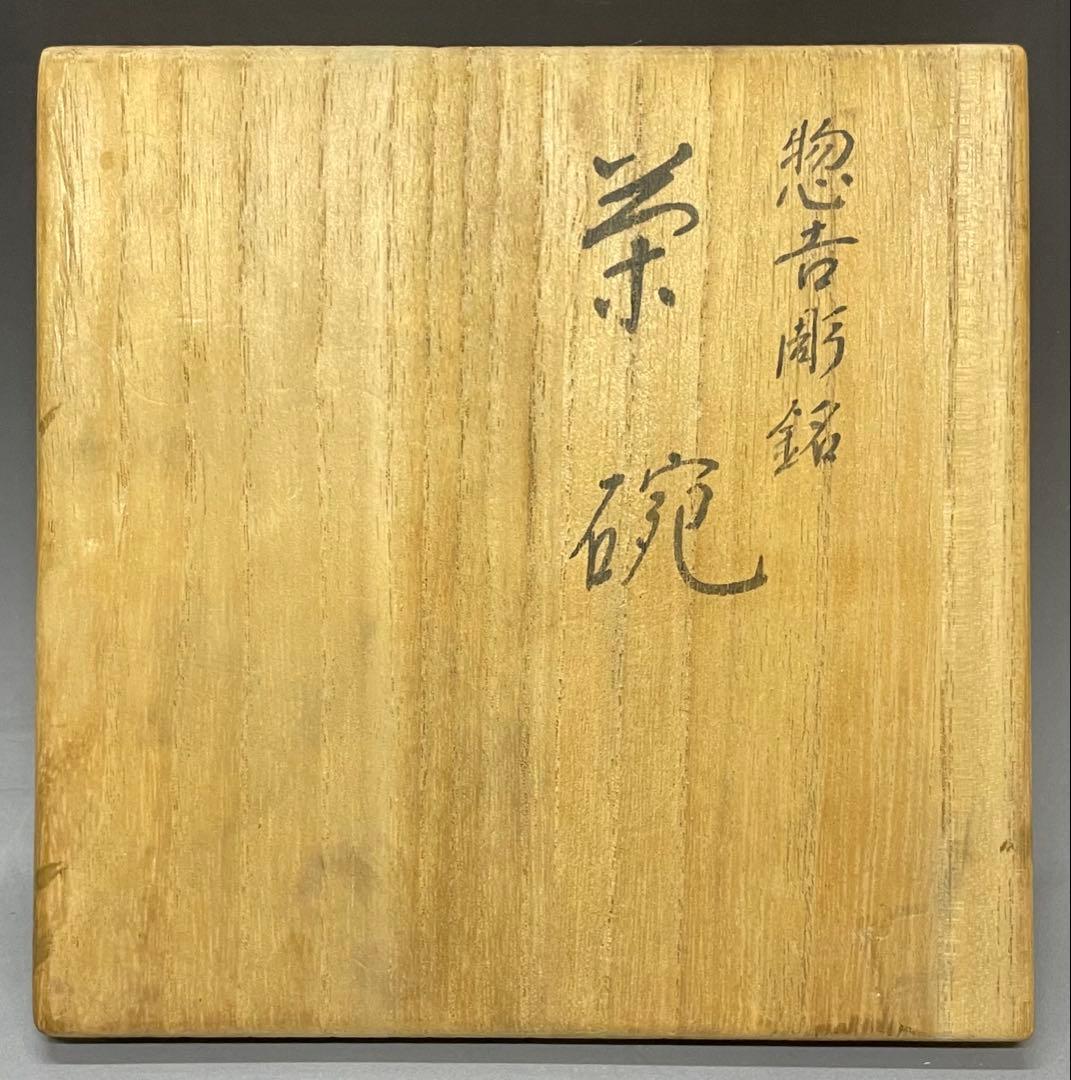 惣吉彫銘
茶碗